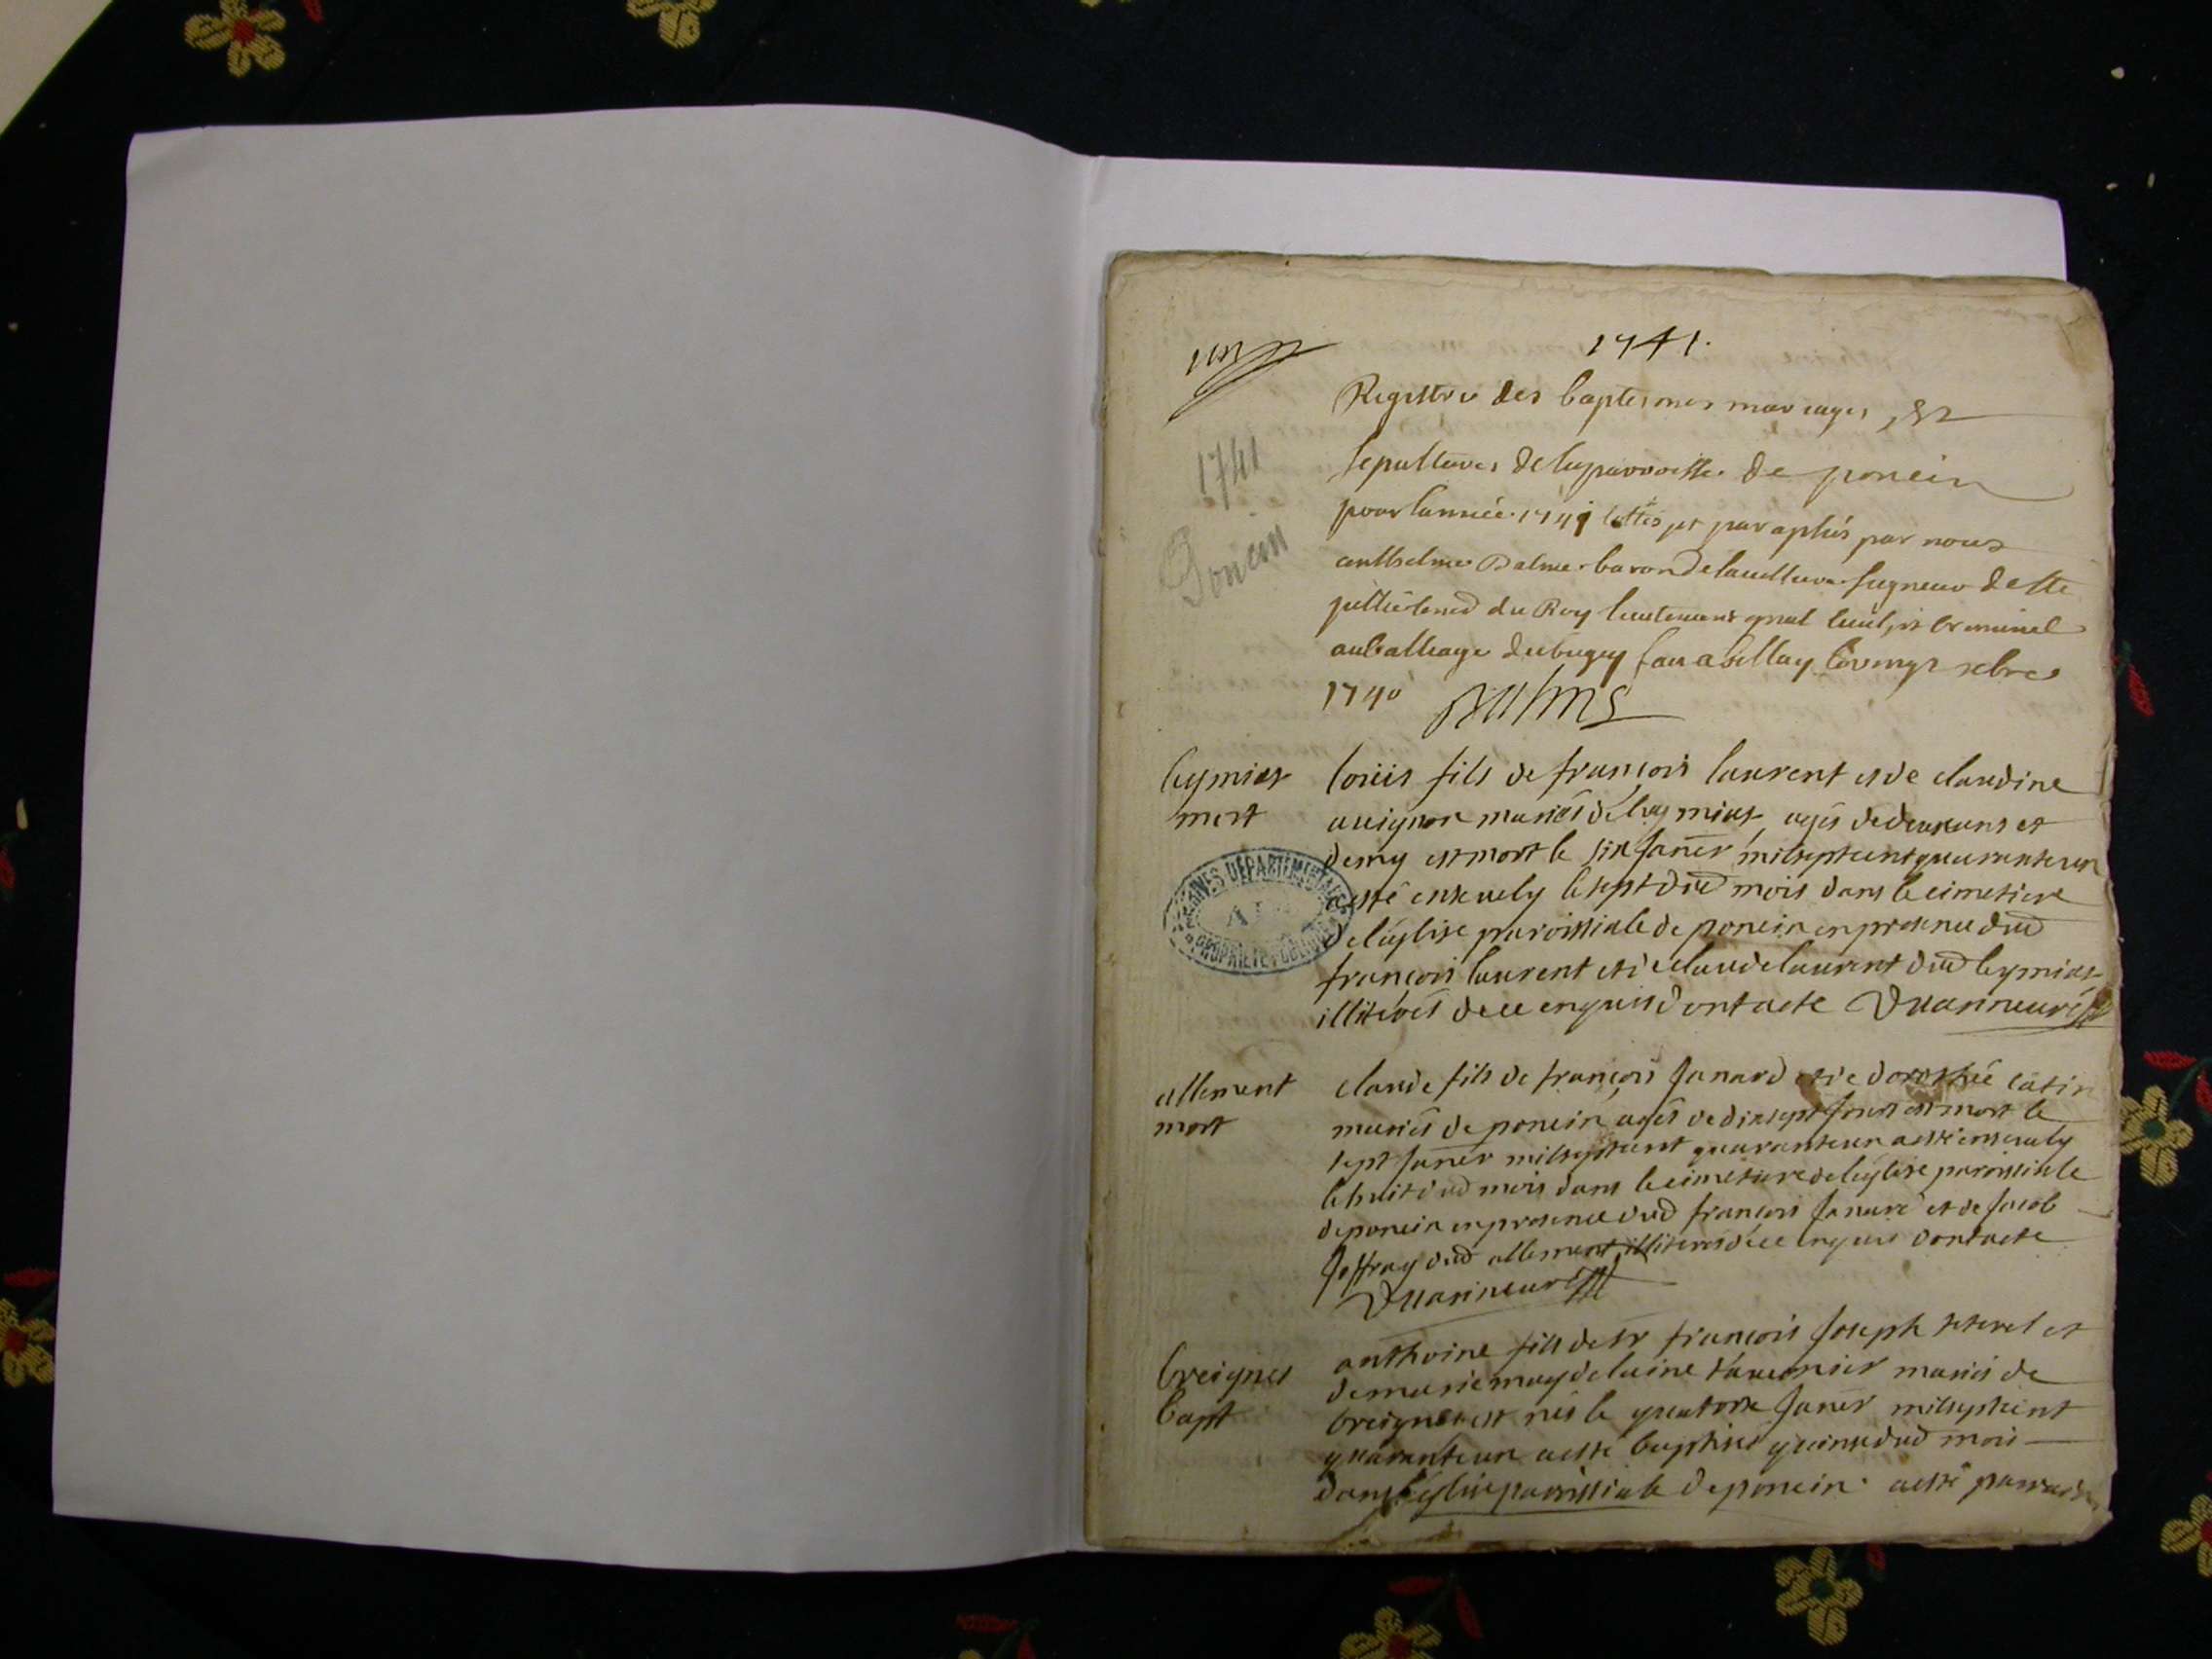 un
1741.
Registre des baptesmes mariages, &
sepultures de la parroisse de poncin
pour l'année 1741 cottés et paraphés par nous
anthelme Balme baron de seigneur de ste
du Roy lieutenant gnal civil, et criminel
au balliage du bugey fait a bellay le vingt xbre
1740 Balme
1741
Poncin
leymiat
mort
louis fils de françois laurent et de claudine
auignon mariés de leymiat, agés de deux ans et
demy est mort le six janer milsept cent quarante un
a esté enseuely le sept dud mois dans le cimetiere
de l'église paroissiale de poncin en presence dud
françois laurent et de claude laurent dud leymiat
illiterés de ce enquis dont acte
ARCHIVES DEPARTEMENTALES
AIN
PROPRIETE PUBLIQUE
allement
mort
claude fils de françois Janard et de dorothée catin
mariés de poncin, agés de dix sept jours est mort le
sept janer milsept cent quarante un a esté enseuely
le huit dud mois dans le cimetiere de l'eglise paroissiale
de poncin en presence dud françois Janard et de Jacob
Joffray dud allement illiteres de ce enquis dont acte
breignes
bapt
anthoine fils de sr françois Joseph teterel et
de marie magdelaine tauernier mariés de
breignes est nés le quatorze janer milsept cent
quarante un a esté baptisé quinze dud mois
dans l'eglise paroissiale de poncin a esté parrain